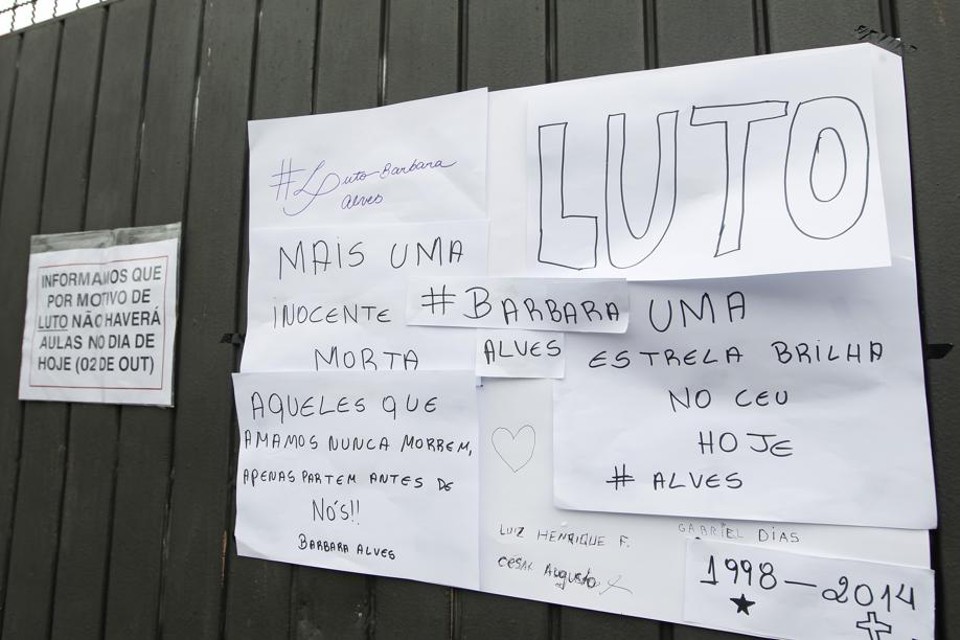 INFORMAMOS QUE
POR MOTIVO DE
LUTO NÃO HAVERÁ
AULAS NO DIA DE
HOJE (02 DE OUT)
#Luto Barbara
Alves
LUTO
MAIS UMA
INOCENTE
MORTA
#BARBARA
ALVES
UMA
ESTRELA BRILHA
NO CEU
HOJE
# ALVES
AQUELES QUE
AMAMOS NUNCA MORREM,
APENAS PARTEM ANTES DE
NÓS!!
BARBARA ALVES
LUIZ HENRIQUE F.
CESAR Augusto
GABRIEL DIAS
1998-2014